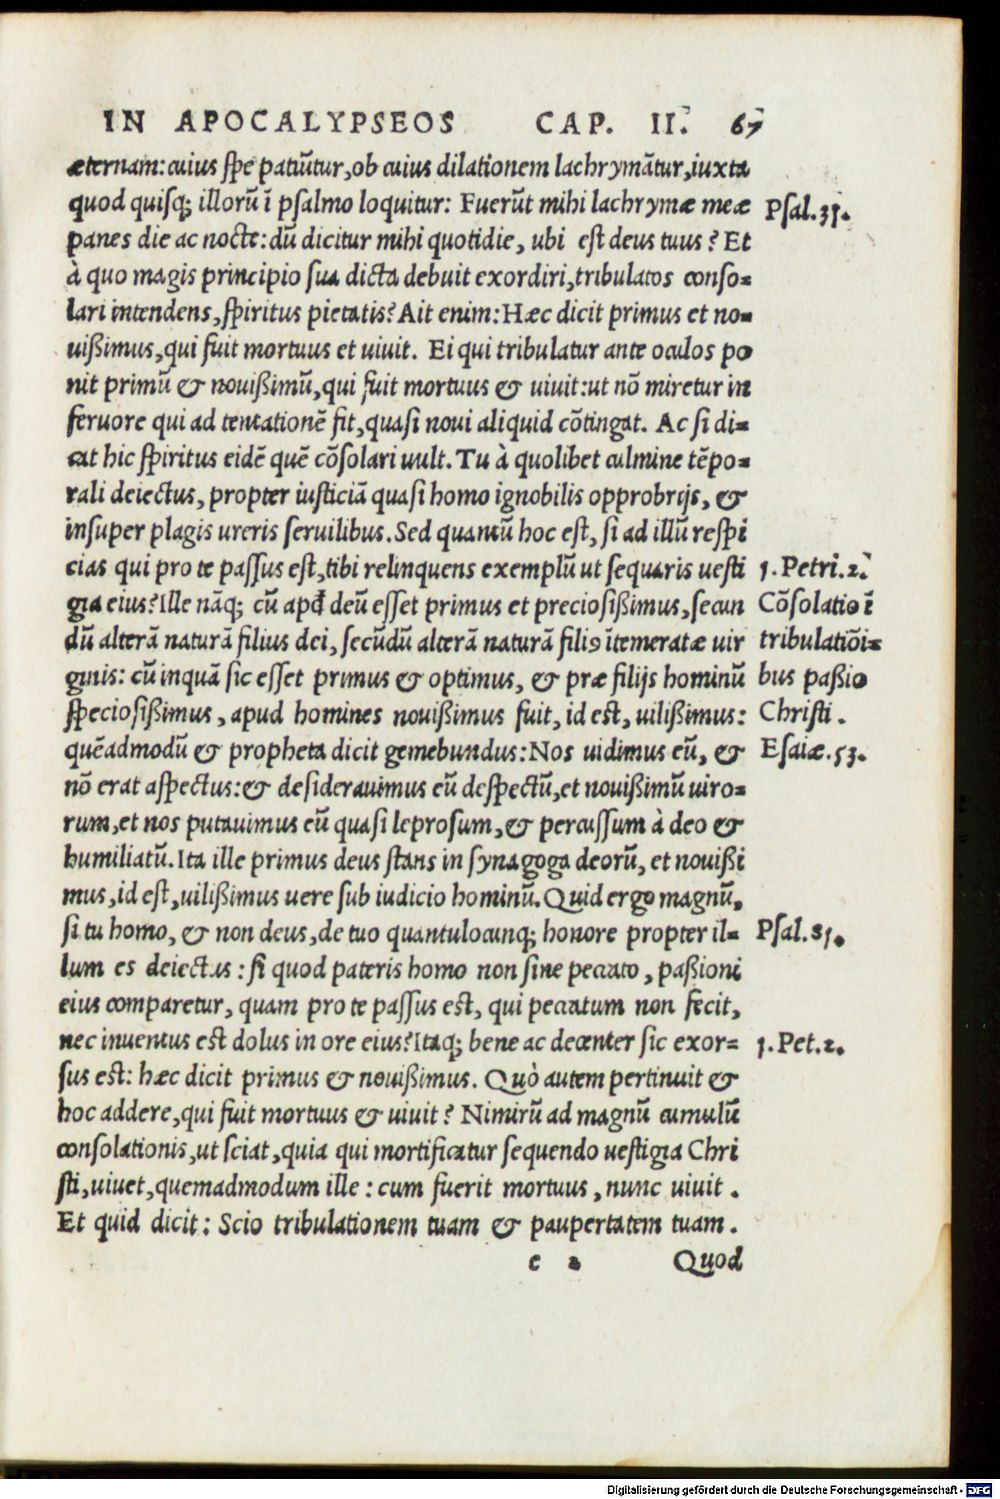 IN APOCALYPSEOS CAP. II. 67
æternam: cuius spe patiũtur, ob cuius dilationem lachrymãtur, iuxta
quod quisq; illorũ ĩ psalmo loquitur: Fuerũt mihi lachrymæ meæ
Psal. 31.
panes die ac nocte: dũ dicitur mihi quotidie, ubi est deus tuus? Et
à quo magis principio sua dicta debuit exordiri, tribulatos conso=
lari intendens, spiritus pietatis? Ait enim: Hæc dicit primus et no=
uißimus, qui fuit mortuus et uiuit. Ei qui tribulatur ante oculos po
nit primũ & nouißimũ, qui fuit mortuus & uiuit: ut nõ miretur in
feruore qui ad tentationẽ fit, quasi noui aliquid cõtingat. Ac si di=
cat hic spiritus eidẽ quẽ cõsolari uult. Tu à quolibet culmine tẽpo=
rali deiectus, propter iusticiã quasi homo ignobilis opprobrijs, &
insuper plagis ureris seruilibus. Sed quantũ hoc est, si ad illũ respi
cias qui pro te passus est, tibi relinquens exemplũ ut sequaris uesti
1. Petri. 2.
gia eius? Ille nãq; cũ apđ deũ esset primus et preciosißimus, secun
Cõsolatio ĩ
dũ alterã naturã filius dei, secũdũ alterã naturã fili9 ĩtemeratæ uir
tribulatiõi=
ginis: cũ inquã sic esset primus & optimus, & præ filijs hominũ
bus paßio
speciosißimus, apud homines nouißimus fuit, id est, uilißimus:
Christi.
quẽadmodũ & propheta dicit gemebundus: Nos uidimus eũ, &
Esaiæ. 53.
nõ erat aspectus: & desiderauimus eũ despectũ, et nouißimũ uiro=
rum, et nos putauimus eũ quasi leprosum, & percussum à deo &
humiliatũ. Ita ille primus deus stans in synagoga deorũ, et nouißi
mus, id est, uilißimus uere sub iudicio hominũ. Quid ergo magnũ,
si tu homo, & non deus, de tuo quantulocunq; honore propter il=
Psal. 81.
lum es deiectus: si quod pateris homo non sine peccato, paßioni
eius comparetur, quam pro te passus est, qui peccatum non fecit,
nec inuentus est dolus in ore eius? Itaq; bene ac decenter sic exor=
1. Pet. 2.
sus est: hæc dicit primus & nouißimus. Quò autem pertinuit &
hoc addere, qui fuit mortuus & uiuit? Nimirũ ad magnũ cumulũ
consolationis, ut sciat, quia qui mortificatur sequendo uestigia Chri
sti, uiuet, quemadmodum ille: cum fuerit mortuus, nunc uiuit.
Et quid dicit: Scio tribulationem tuam & paupertatem tuam.
e 2 Quod
Digitalisierung gefördert durch die Deutsche Forschungsgemeinschaft - DFG